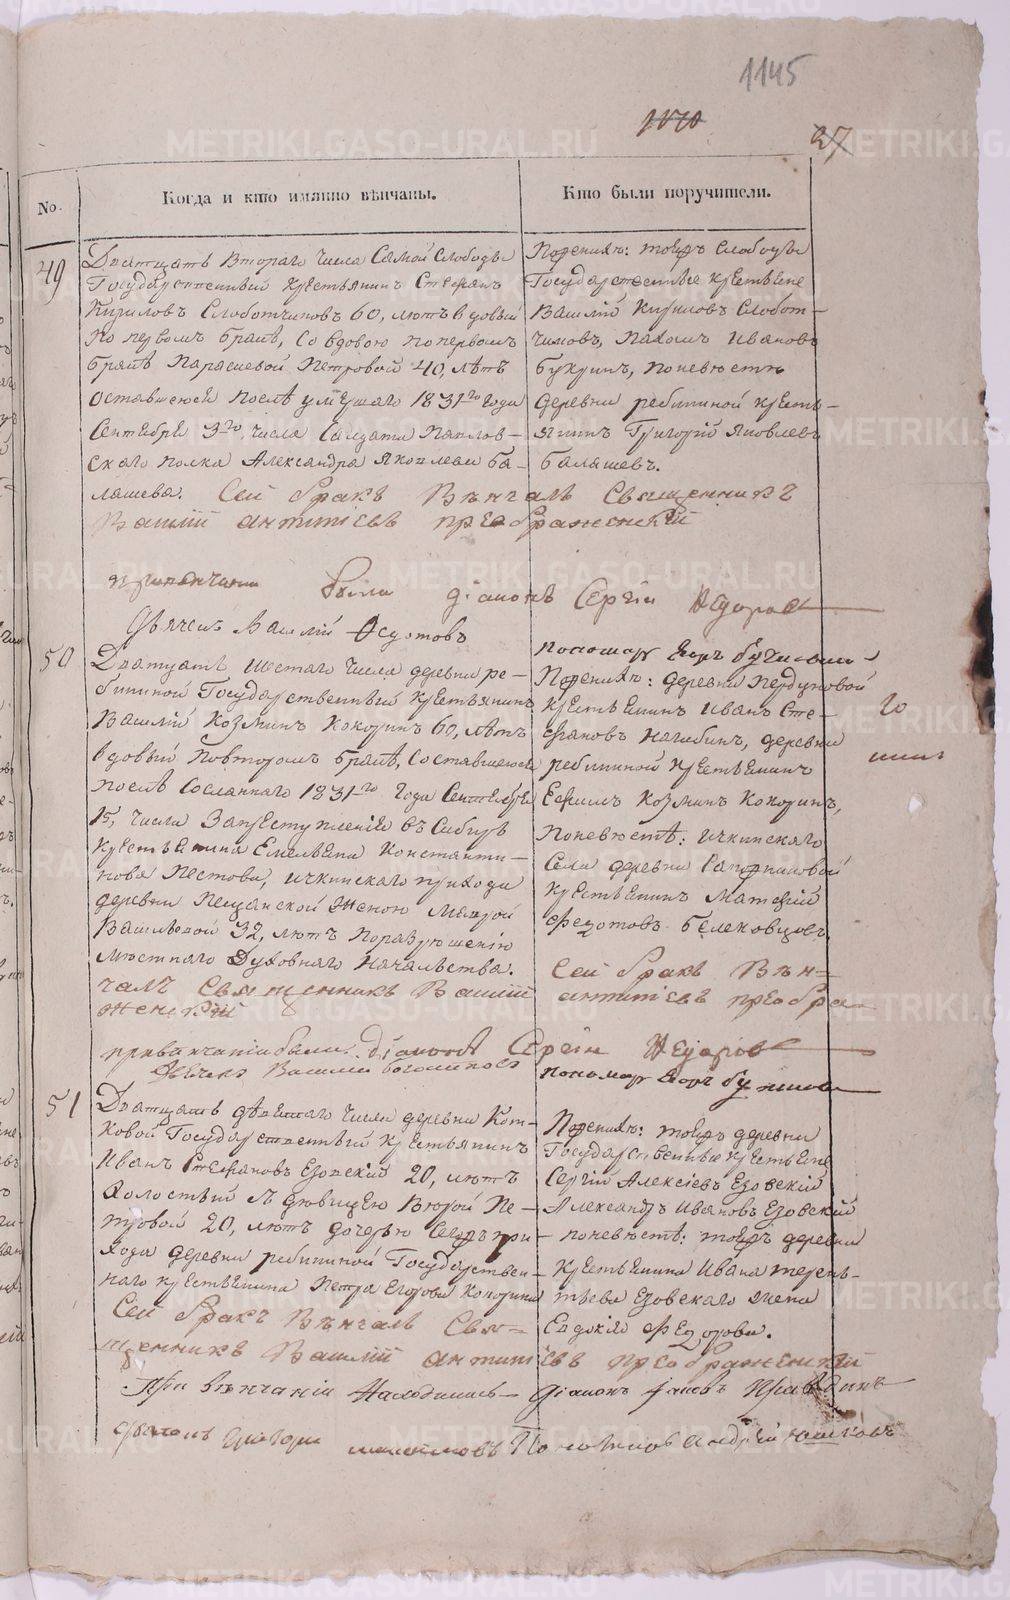 1145
1010
27
No.
Когда и кто имянно вѣнчаны.
Кто были поручители.
49
Дватцать втораго числа Самой Слободы
Государственный крестьянинъ Стефанъ
Кириловъ Слоботчиковъ 60, лѣтъ вдовый
по первомъ бракѣ, со вдовою по первомъ
бракѣ Параскевой Петровой 40, лѣтъ
оставшеюся послѣ умершаго 1831го года
Сентября 3го, числа Салдата Павлов-
скаго полка Александра Яковлева Ба-
лашева. Сей бракъ Вѣнчалъ Священникъ
Василій Антипіевъ Преображенскій
По женихѣ: тояжъ Слободы
Государственные крестьяне
Василій Кириловъ Слобот-
чиковъ, Пахомъ Ивановъ
Букринъ, по невѣстѣ
деревни ребининой кресть-
янинъ Григорій Яковлевъ
Балашевъ.
при венчании были діаконъ Сергій Федоровъ
Дьячекъ Василій
пономарь Егоръ
50
Дватцать шестаго числа деревни ре-
бининой Государственный крестьянинъ
Василій Козминъ Кокоринъ 60, лѣтъ
вдовый по второмъ бракѣ, с оставшеюся
послѣ сосланнаго 1831го года Сентября
15, числа за преступленіе въ Сибирь
крестьянина Емельяна Константи-
нова Пестова, ичкинскаго прихода
деревни Пещанской женою Маврой
Васильевой 32, лѣтъ по разрѣшенію
мѣстнаго Духовнаго Начальства.
По женихѣ: деревни Пердуновой
крестьянинъ Иванъ Сте-
фановъ Нагибинъ, деревни
ребининой крестьянинъ
Ефимъ Козминъ Кокоринъ,
по невѣстѣ: ичкинскаго
села деревни
крестьянинъ Матфій
Федотовъ
Сей бракъ Вѣн-
чалъ Священникъ Василій Антипіевъ Преобра-
женскій
при венчаніи были: Діаконъ Сергій Федоровъ
Дьячекъ Василий пономарь Егоръ
51
Дватцать девятаго числа деревни Кот-
ковой Государственный крестьянинъ
Иванъ Стефановъ Езовский 20, лѣтъ
Холостый с дѣвицею Вѣрой Пе-
тровой 20, лѣтъ дочерью сегожъ при-
хода деревни ребининой Государствен-
наго крестьянина Петра Егорова Кокорина
Сей бракъ Вѣнчалъ Свя-
щенникъ Василій Антипіевъ Преображенскій
По женихѣ: тояжъ деревни
Государственные крестьяне
Сергій Алексіевъ Езовский
Александръ Ивановъ Езовский
по невѣстѣ: тояжъ деревни
крестьянина Ивана терень-
тьева Езовскаго жена
Евдокія Федорова.
При вѣнчаніи находились діаконъ Іаковъ
Пономарь Андрей